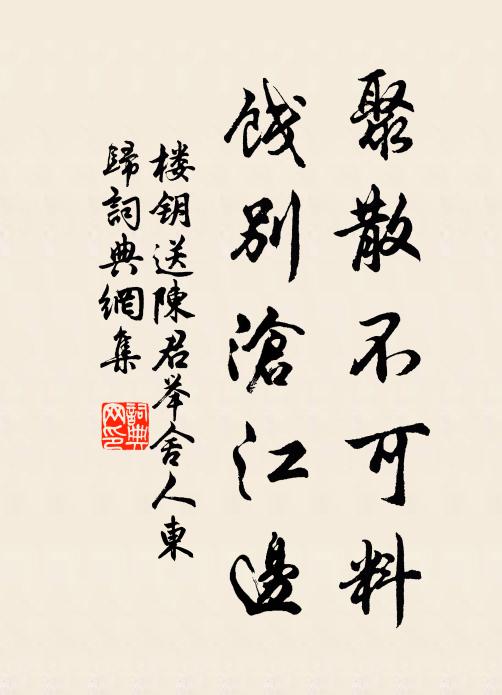 聚散不可料
餞別滄江邊
楼钥送陳君举舍人東
歸詞典網集
詞典网印